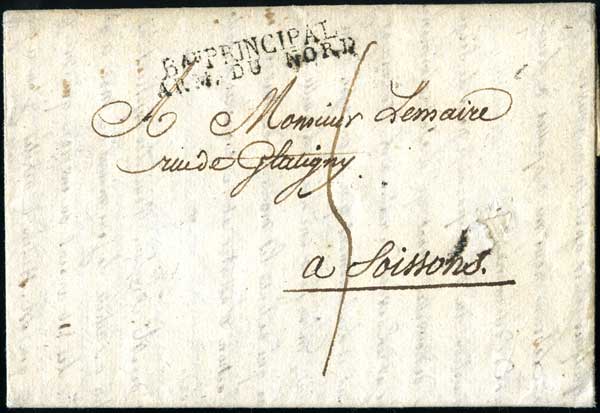 Bau PRINCIPAL
ARM. DU NORD
A Monsieur Lemaire
rue de Glatigny
5
a Soissons.